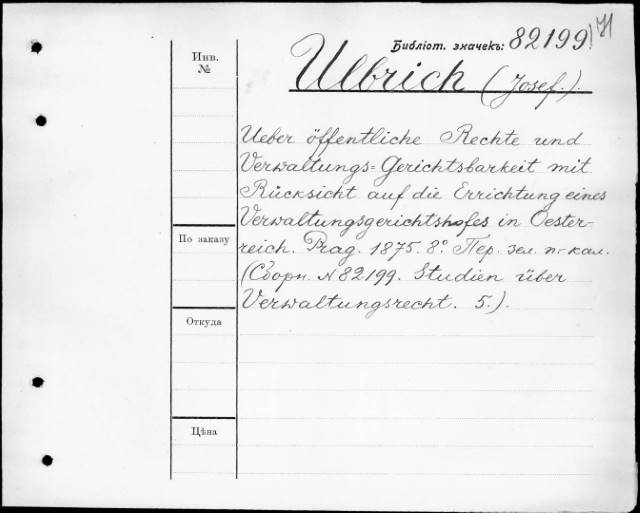 Библіот. значекъ: 82199
Инв.
№
Ulbrich (Josef.).
Ueber öffentliche Rechte und
Verwaltungs=Gerichtsbarkeit mit
Rücksicht auf die Errichtung eines
Verwaltungsgerichtshofes in Oester-
reich. Prag. 1875. 8°. Пер. зел. п-кал.
(Сборн. N 82199. Studien über
Verwaltungsrecht. 5.).
По заказу
Откуда
Цѣна